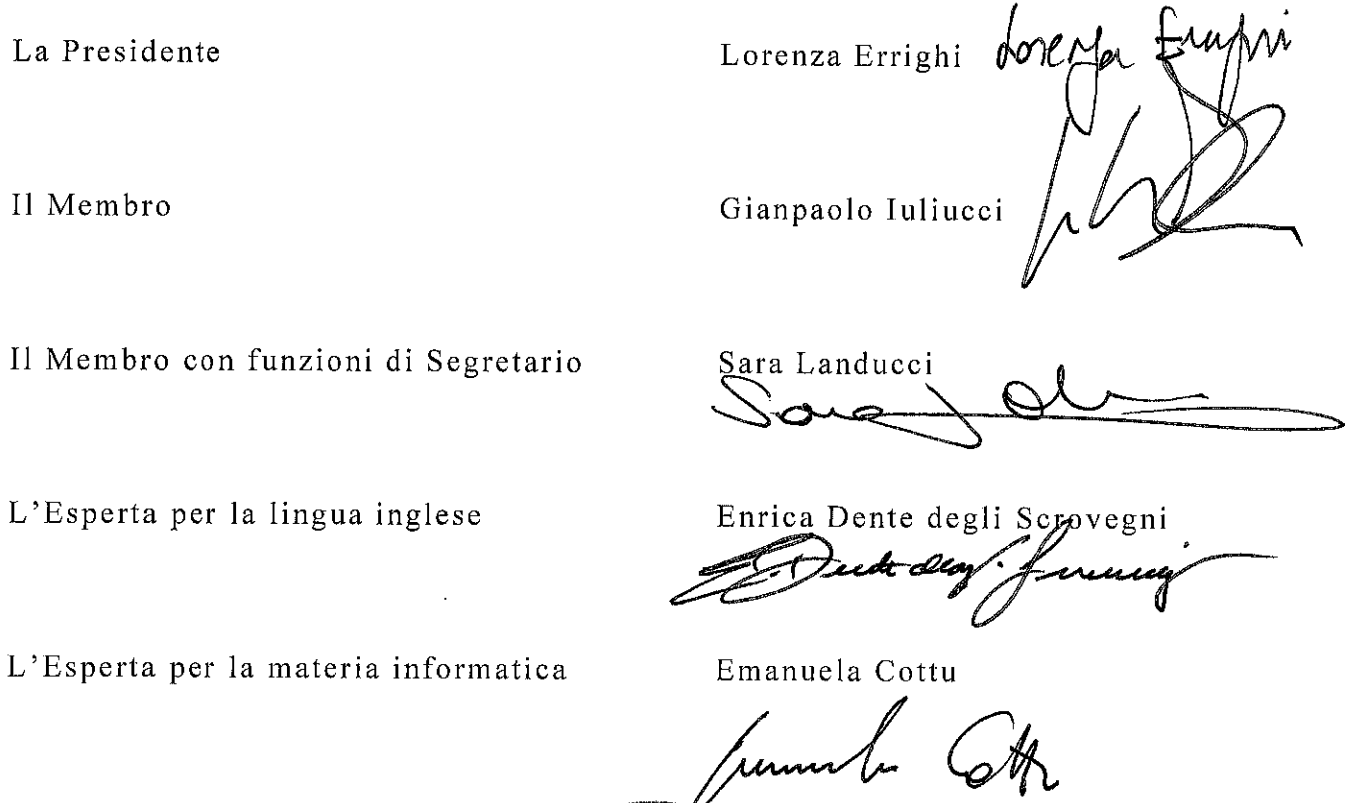 La Presidente Lorenza Errighi Lorenza Errighi
Il Membro Gianpaolo Iuliucci
Il Membro con funzioni di Segretario Sara Landucci
Sara
L'Esperta per la lingua inglese Enrica Dente degli Scrovegni
E. Dente degli Scrovegni
L'Esperta per la materia informatica Emanuela Cottu
Emanuela Cottu